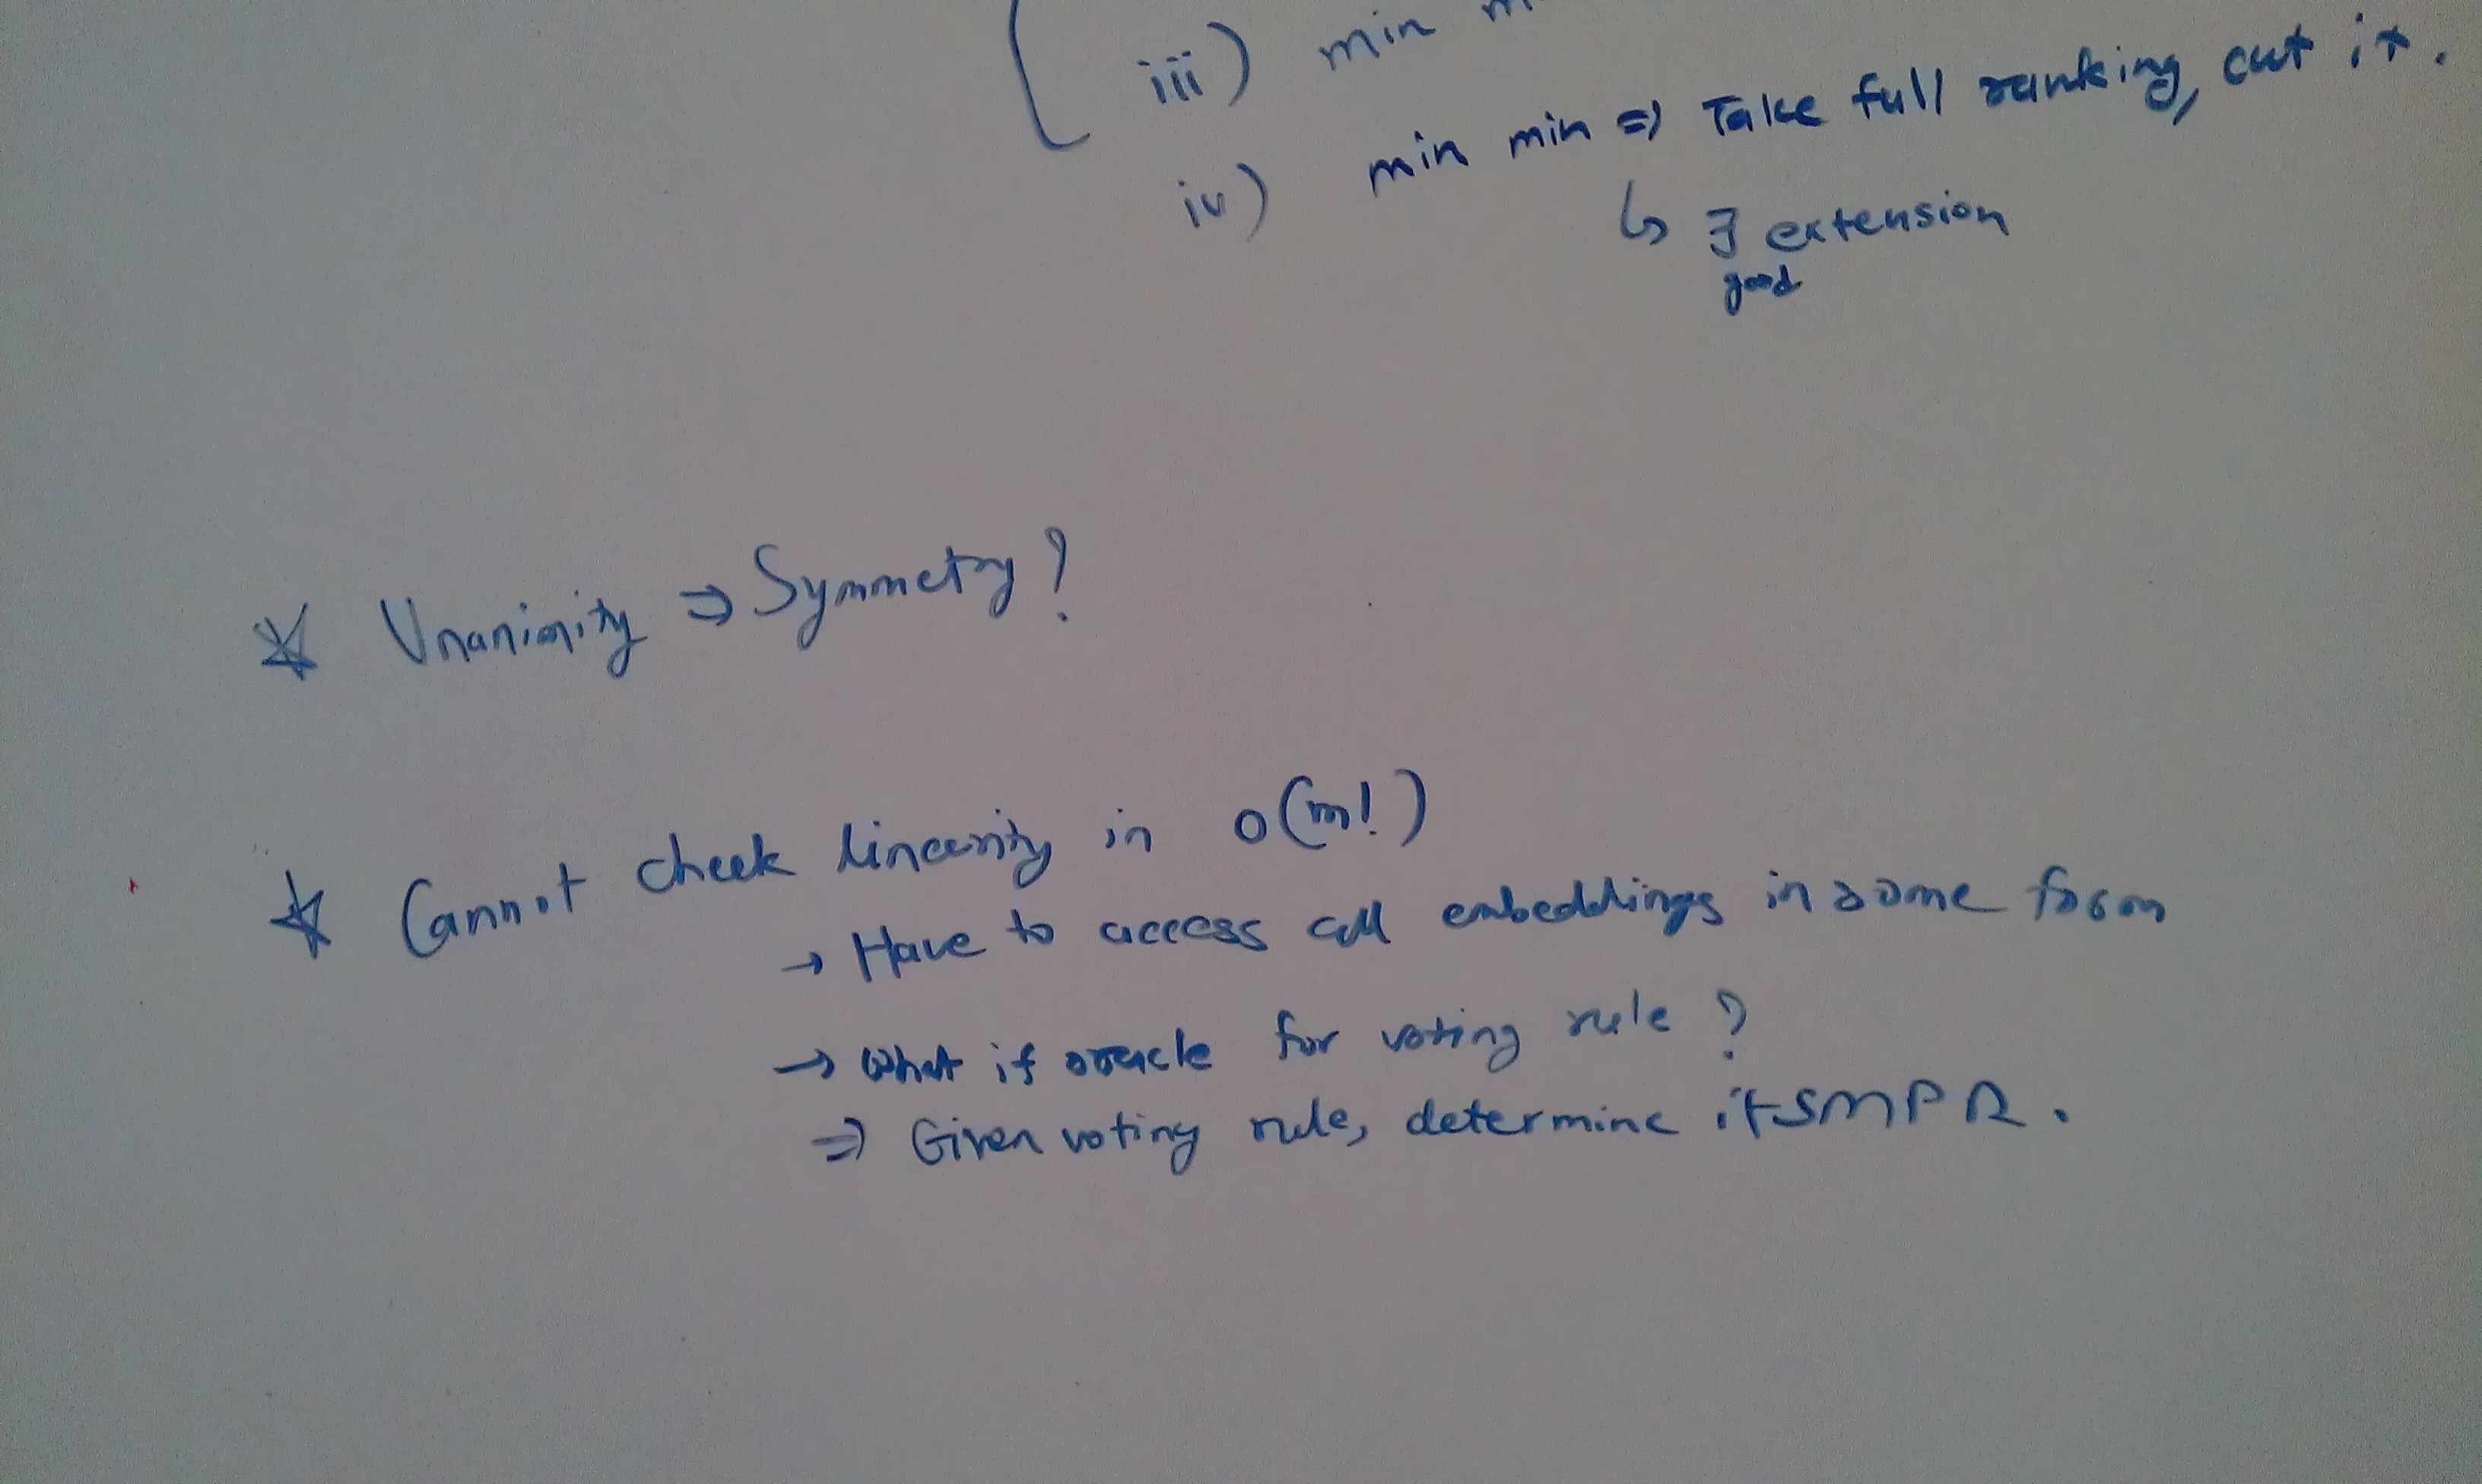 iii) min
iv) min min => Take full ranking, cut it.
↳ ∃ extension
good
* Unanimity => Symmetry?
* Cannot check linearity in o(m!)
→ Have to access all embeddings in some form
→ What if oracle for voting rule?
=> Given voting rule, determine if SMPR.